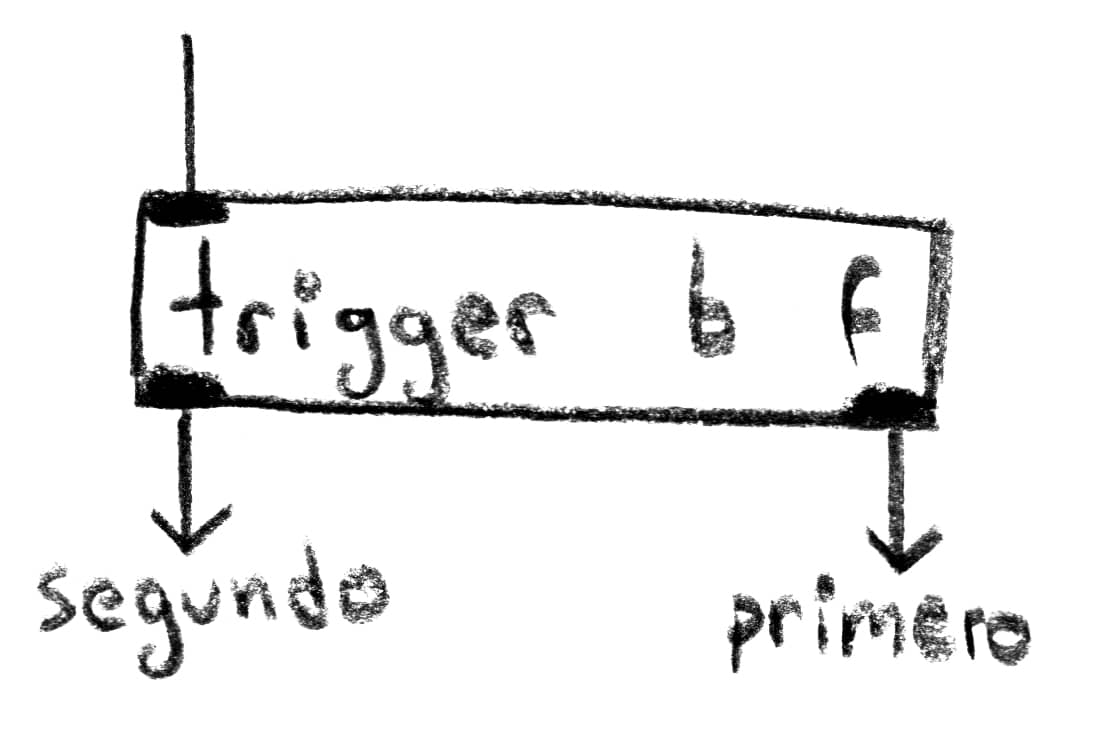 trigger b f
segundo
primero